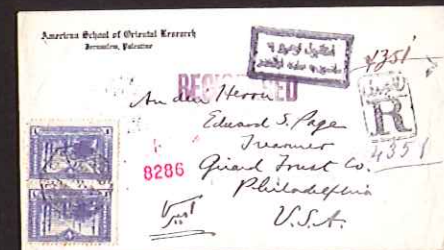 American School of Oriental Research
Jerusalem, Palestine
4351
REGISTERED
An den Herrn
Edward S. Page
Treasurer
Girard Trust Co.
Philadelphia
U.S.A.
8286
R
4351